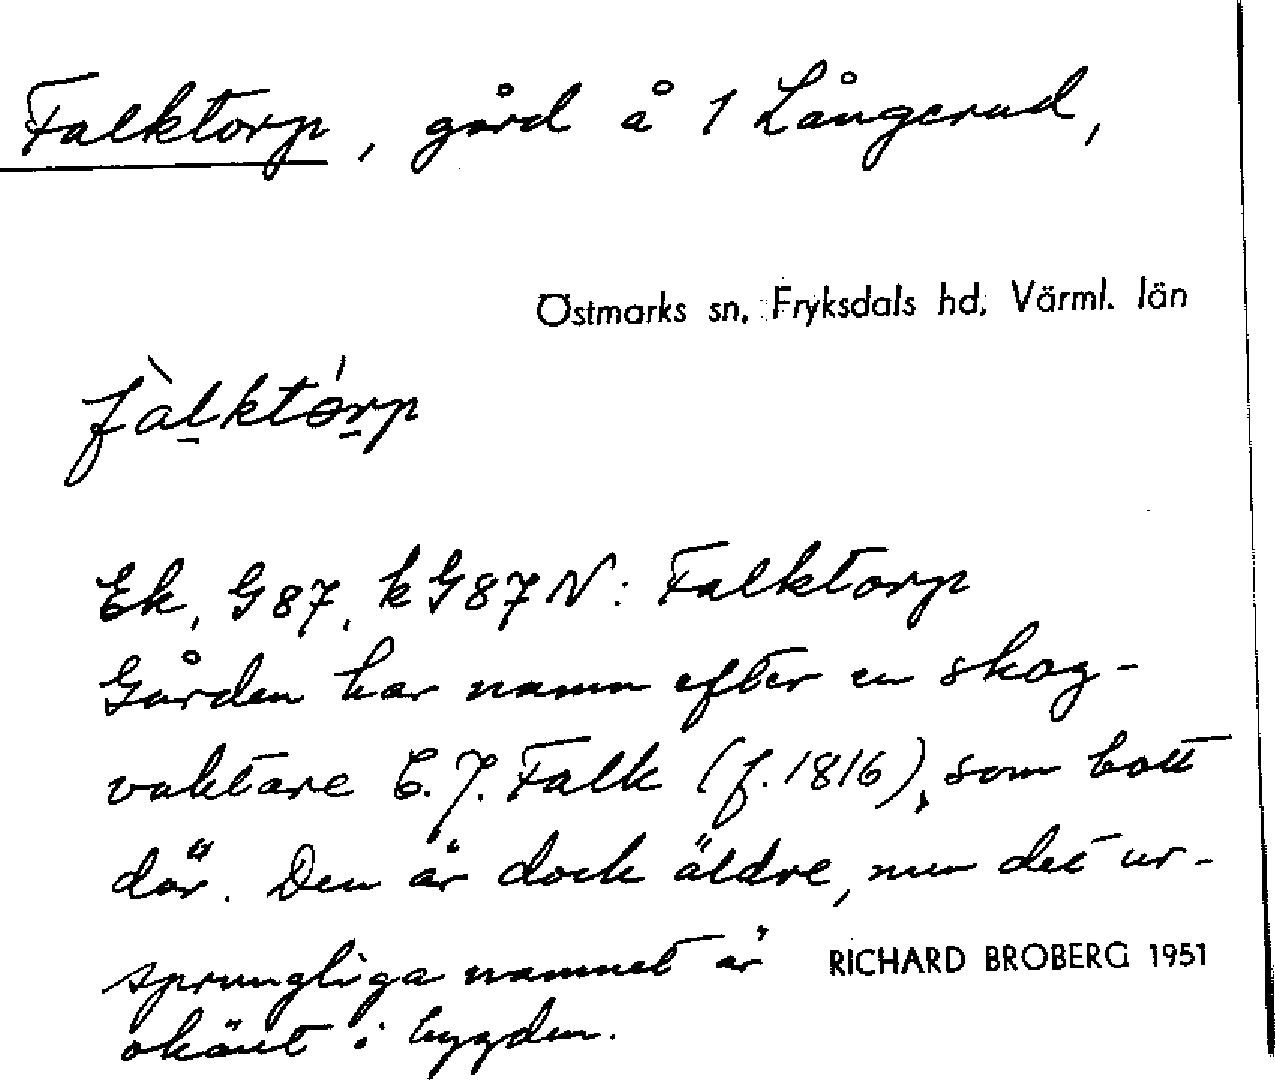 Falktorp, gård å 1 Långerud,
Östmarks sn, Fryksdals hd, Värml. län
fàlktórp
Ek, G87, kG87N: Falktorp
Gården har namn efter en skog-
vaktare E.J. Falk (f. 1816), som bott
där. Den är dock äldre, men det ur-
sprungliga namnet är
RICHARD BROBERG 1951
okänt i bygden.